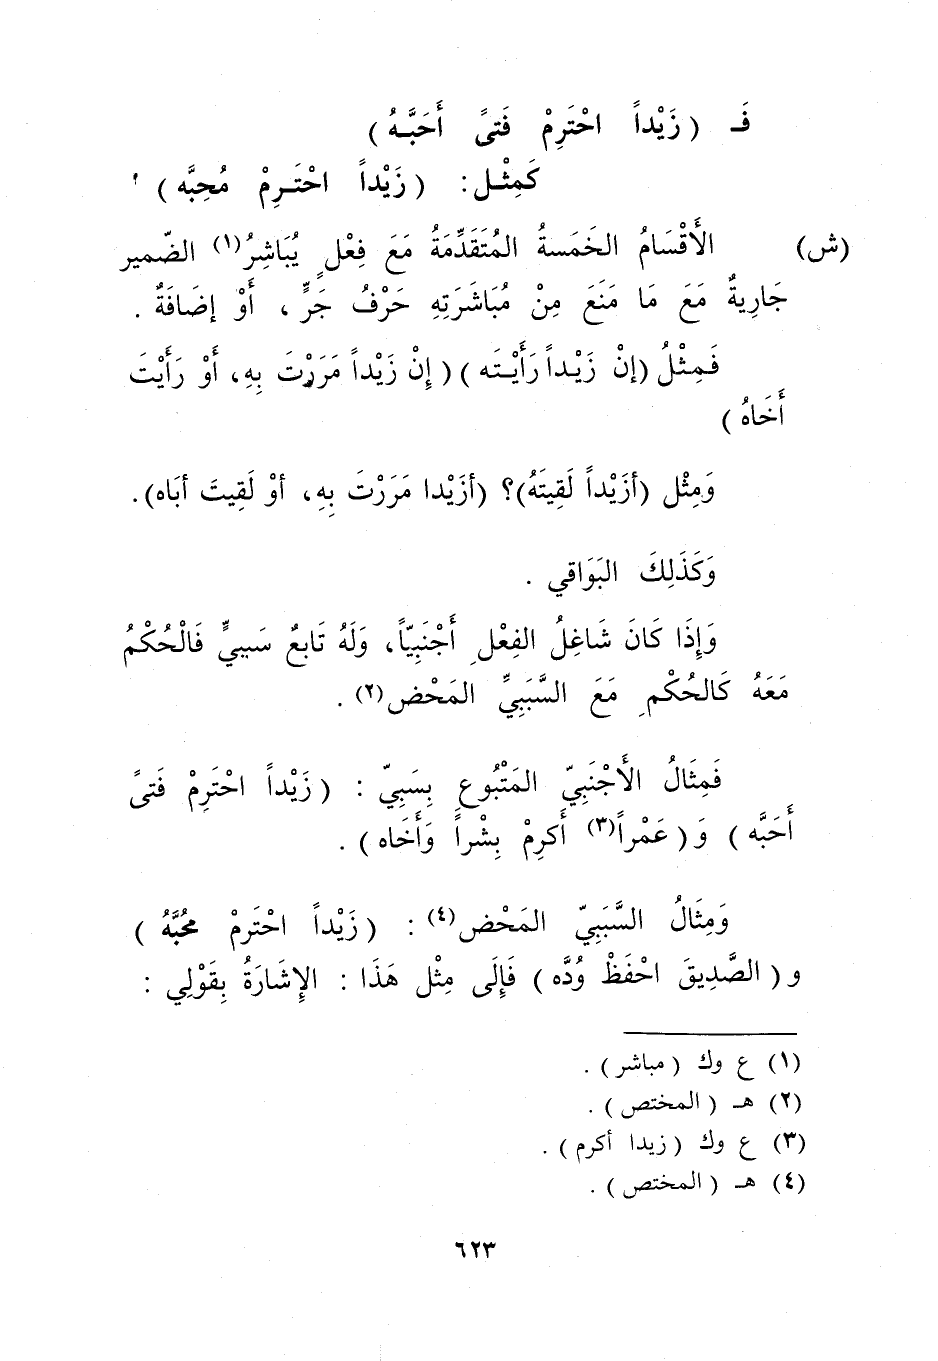 فَـ ( زَيْداً احْتَرِمْ فَتىً أَحَبَّـهُ )
كَمِثْـلِ : ( زَيْداً احْتَـرِمْ مُحِبَّه )
(ش) الأَقْسَامُ الخَمَسةُ المُتَقَدِّمَةُ مَعَ فِعْلٍ يُبَاشِرُ(١) الضّمير
جَارِيةٌ مَعَ مَا مَنَعَ مِنْ مُبَاشَرَتِهِ حَرْفُ جَرٍّ ، أَوْ إضَافَةٌ .
فَمِثْلُ (إنْ زَيْداً رَأَيْتَه ) ( إِنْ زَيْداً مَرَرْتَ بِهِ، أَوْ رَأَيْتَ
أَخَاهُ )
وَمِثْل (أزَيْداً لَقِيتَهُ)؟ (أزَيْدا مَرَرْتَ بِهِ، أوْ لَقِيتَ أبَاه).
وَكَذَلِكَ البَوَاقي .
وَإِذَا كَانَ شَاغِلُ الفِعْلِ أَجْنَبِيّاً، وَلَهُ تَابعٌ سَببيٌّ فَالْحُكْمُ
مَعَهُ كَالحُكْمِ مَعَ السَّبَبِيِّ المَحْض(٢) .
فَمِثَالُ الأَجْنَبِيّ المَتْبُوع بِسَبِيّ : ( زَيْداً احْتَرِمْ فَتىً
أَحَبَّه ) وَ ( عَمْراً(٣) أَكرِمْ بِشْراً وَأَخَاه ) .
وَمِثَالُ السَّبَبِيّ المَحْض(٤) : ( زَيْداً احْتَرِمْ مُحبَّهُ )
و ( الصَّدِيقَ احْفَظْ وُدَّه ) فَإِلَى مِثْل هَذَا : الإِشَارَةُ بِقَوْلِي :
(١) ع وك ( مباشر ) .
(٢) هـ ( المختص ) .
(٣) ع وك ( زيدا أكرم ) .
(٤) هـ ( المختص ) .
٦٢٣